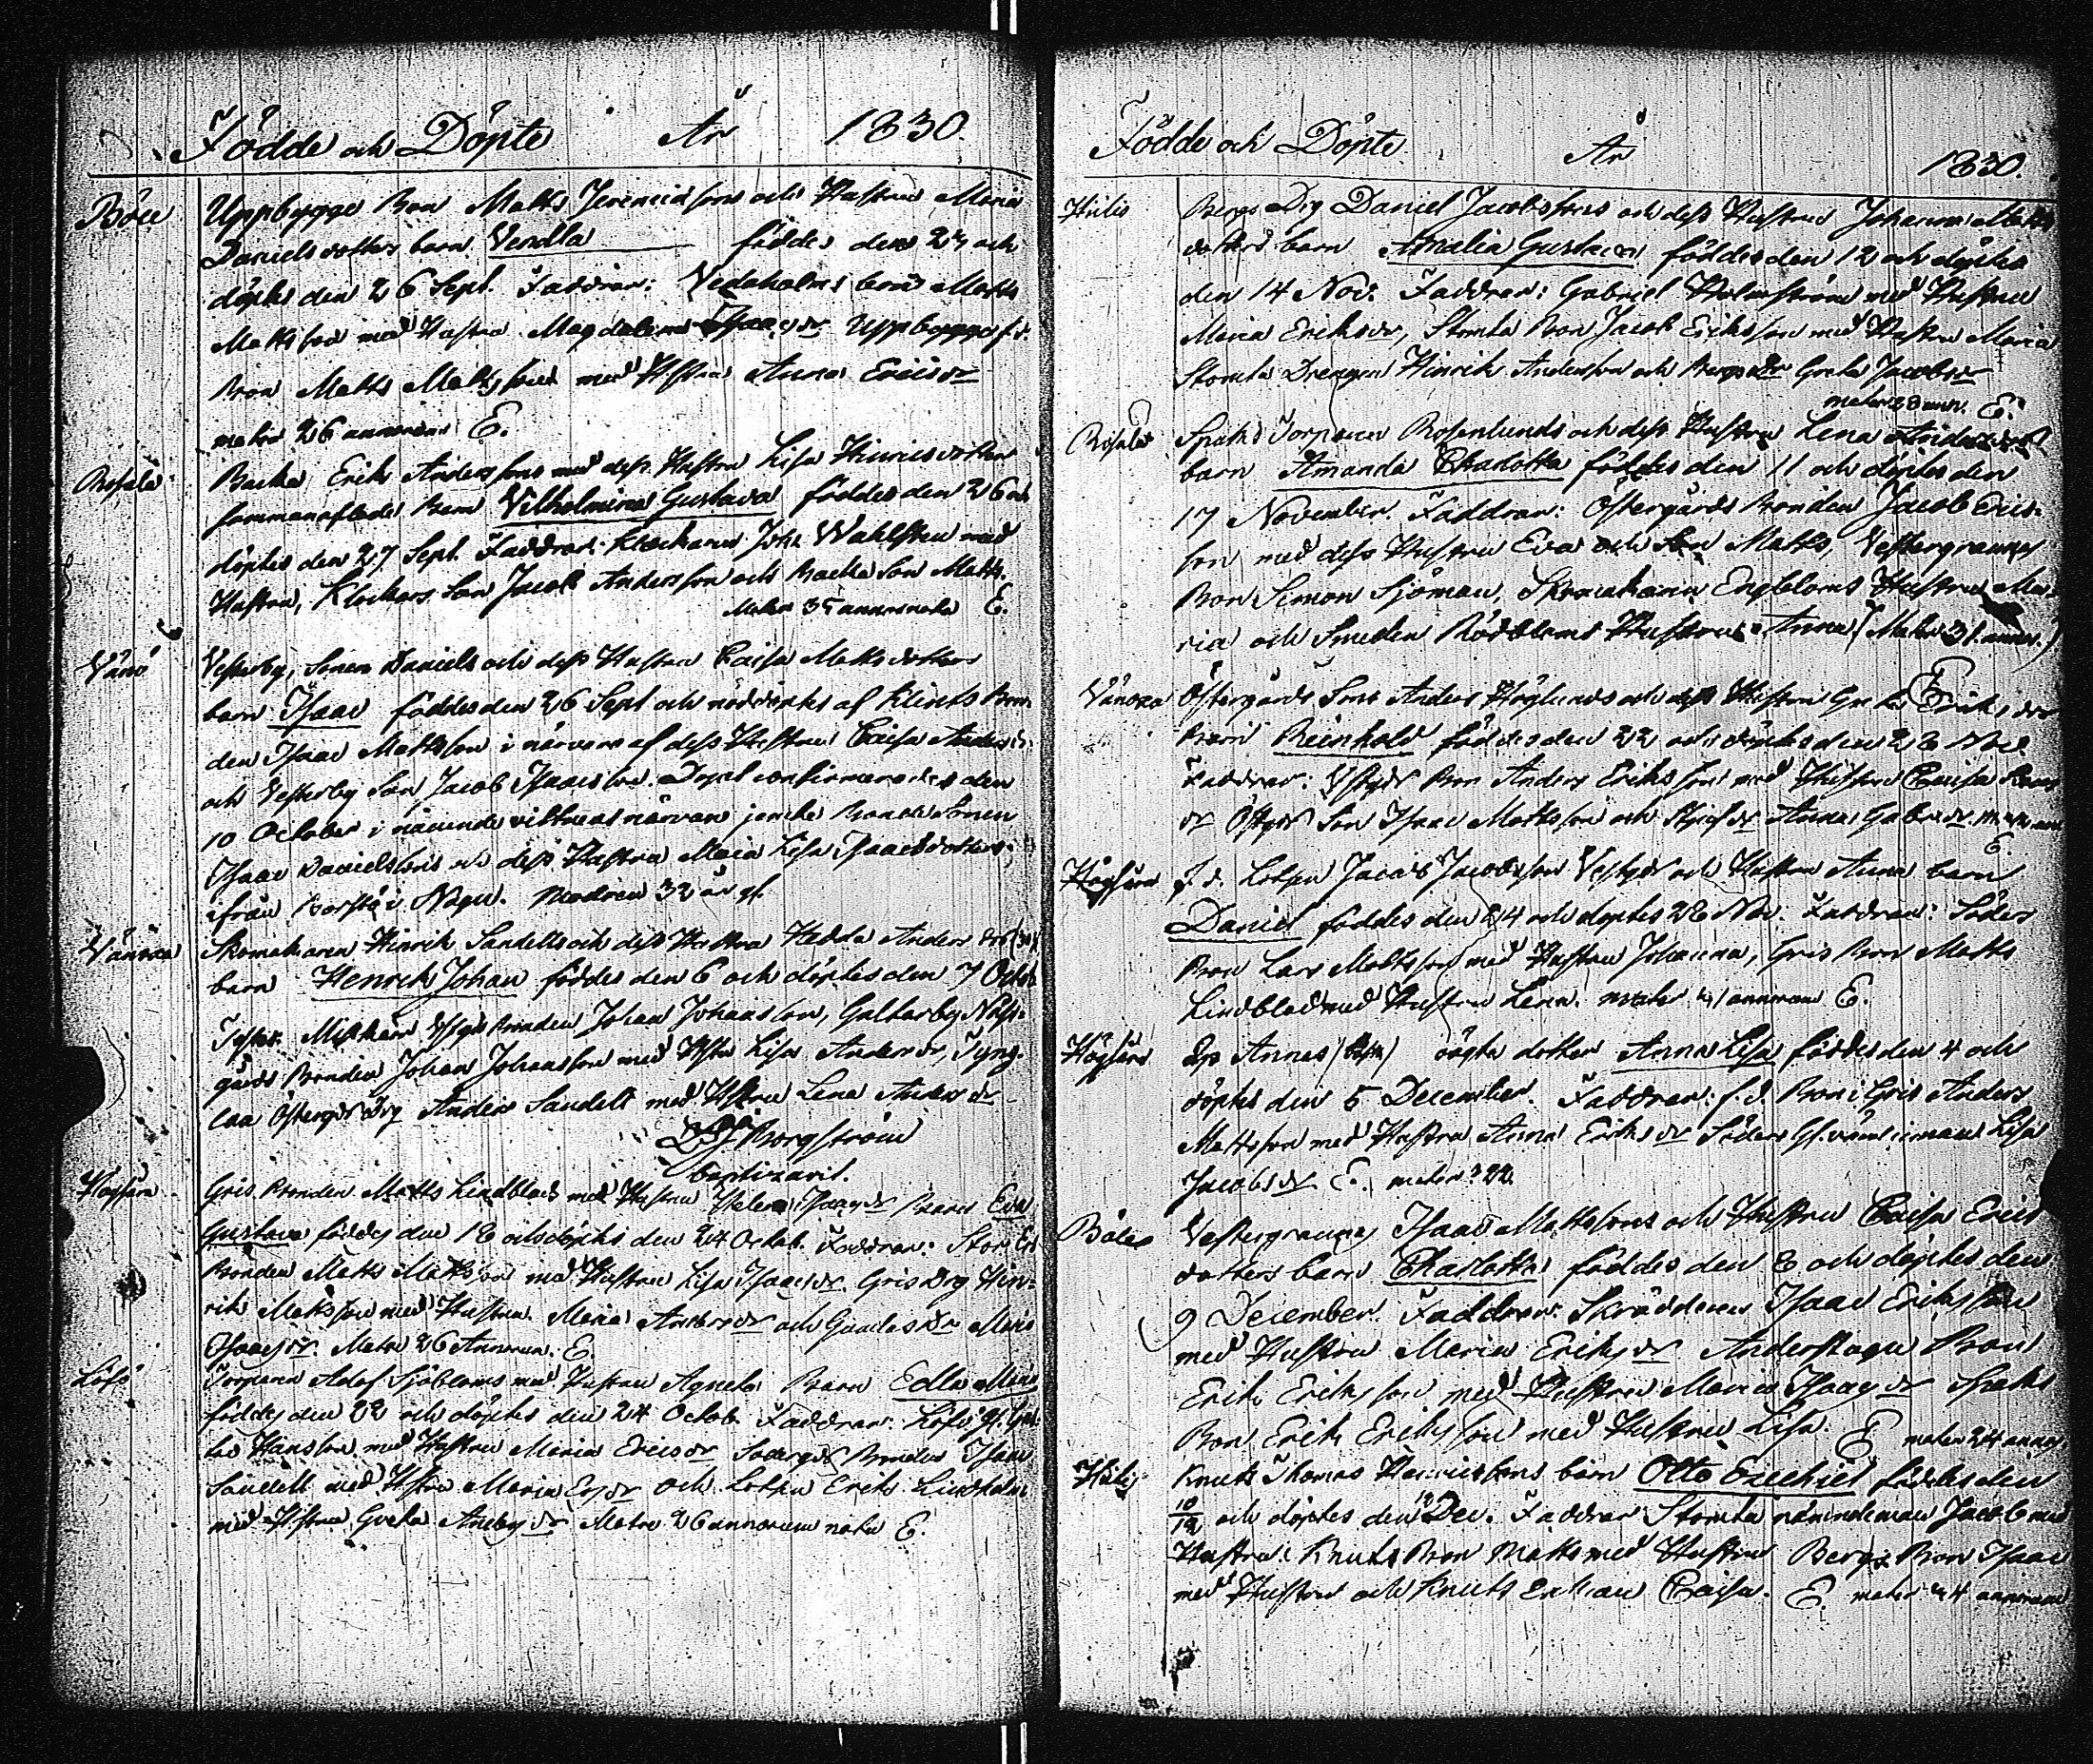 Födde och Döpte År 1830.
Böle Uppbygge Bon Matts Jeremiassons och Hustrus Maria
Danielsdotters barn Vendla föddes den 24 och
döptes den 26 Sept. Faddrar: Matts
Mattsson med Hustru Magdalena Isaacsdr Uppbygge f.d.
Bon Matts Mattsson med Hstru Anna Ericsdr
mater 26 annorum E.
Rosala Backa Erik Anderssons med dess Hustru Lisa Hinricsdotter
sammanaflade Barn Vilhelmina Gustava föddes den 26 och
döptes den 27 Sept. Faddrar: Klockaren Joh. Wahlsten med
Hustru, Klockars Son Jacob Andersson och Backa Son Matts.
Mater 35 annor nata E.
Vänö Vesterby, Sonen Daniels och dess Hustru Caisa Mattsdotters
barn Isaac föddes den 26 Sept och nöddöptes af Klints Bon-
den Isaac Mattsson i närvaro af dess Hustru Caisa Andersdr
och Vesterby Son Jacob Isaacsson. Dopet confirmerades den
10 October i närvaro Bonde Sonen
Isaac Danielssons och dess Hustru Maria Lisa Isaacsdotters
ifrån i Nagu. Modren 32 år gl.
Vänoxa Skomakaren Hinrik Sandells och dess Hustru Hedda Andersdrs (30)
barn Henrik Johan föddes den 6 och döptes den 7 Octob
Bonden Johan Johansson, Galtarby Nås-
gårds Bonden Johan Johansson med Hstru Lisa Andersdr, Tyng-
laa Östergårds Drg Anders Sandell med Hstru Lena Andersdr
Borgström
baptizavit.
Högsåra Gris Bonden Matts Lindblads med Hustru Helena Isaacsdr Barn Eva
Gustava föddes den 18 och döptes den 24 Octob. Faddrar: Stor
Bonden Matts Mattsson med Hustru Lisa Isaacsdr. Gris Drg Hin-
rik Mattsson med Hustru Maria Andersdr och Maria
Isaacsdr. Mater 26 Annorum. E.
Löfö Torparen Adolf Sjöbloms med Hustru Agneta Barn Edla Maria
föddes den 22 och döptes den 24 Octob Faddrar: Löfö
Hansson med Hustru Maria Ericsdr Södergårds Bonden Isaac
Sandell med Hstru Maria och Lotsen Erik Lindholm
med Hstru Greta Andersdr Mater 26 annorum nata E.
Födde och Döpte År 1830.
Hiitis Bergs Drg Daniel Jacobssons och dess Hustrus Johanna Matts
dotters barn Amalia Gustava föddes den 12 och döptes
den 14 Nov. Faddrar: Gabriel Holmström med Hustru
Maria Eriksdr, Stomta Bon Jacob Eriksson med Hustru Maria
Stomta Drengen Hinrik Andersson och Bergs Dr Greta Jacobsdr
mater 28 ann. E.
Rosala Spaks Torparen Rosenlunds och dess Hustru Lena Andersdrs
barn Amanda Charlotta föddes den 11 och döptes den
17 November. Faddrar: Östergårds Bonden Jacob Eric-
son med dess Hustru Eva och Son Matts, Vestergranna
Bon Simon Sjöman, Skomakaren Engbloms Hustru Ma-
ria och Smeden Rödbloms Hustru Anna (Mater 31 annor.)
E
Vänoxa Östergårds Son Anders Höglunds och dess Hustru Greta Eriksdrs
Barn Reinhold föddes den 22 och döptes den 28 Nov
Faddrar: Bon Anders Eriksson med Hustru Caisa
dr Son Isaac Mattsson och Anna Gabrsdr
E.
Högsåra f.d. Lotsen Jacob Jacobsson och Hustru Anna barn
Daniel föddes den 24 och döptes 28 Nov. Faddrar: Söders
Bon Lars Mattsson med Hustru Johanna, Gris Bon Matts
Lindblad med Hustru Lena. mater 41 annorum E.
Högsåra Anna oägta dotter Anna Lisa föddes den 4 och
döptes den 5 December. Faddrar: f.d. Bon i Gris Anders
Mattsson med Hustru Anna Eriksdr Söders Lisa
Jacobsdr. E. mater 22.
Böle Vestergranna Isaac Mattssons och Hustru Caisa Erics
dotters barn Charlotta föddes den 8 och döptes den
9 December. Faddrar: Skräddaren Isaac Eriksson
med Hustru Maria Eriksdr Bon
Erik Eriksson med Hustru Maria Isaacsdr Spaks
Bon Erik Eriksson med Hustru Lisa. E mater 24 annor.
Hiitis Knuts Thomas Henricssons barn Otto Ezechiel föddes den
10/12 och döptes den Dec. Faddrar Stomta nämndeman Jacob med
Hustru Knuts Bon Matts med Hustru Bergs Bon Isaac
med Hustru och Knuts enkan Caisa. E. mater 44 annorum